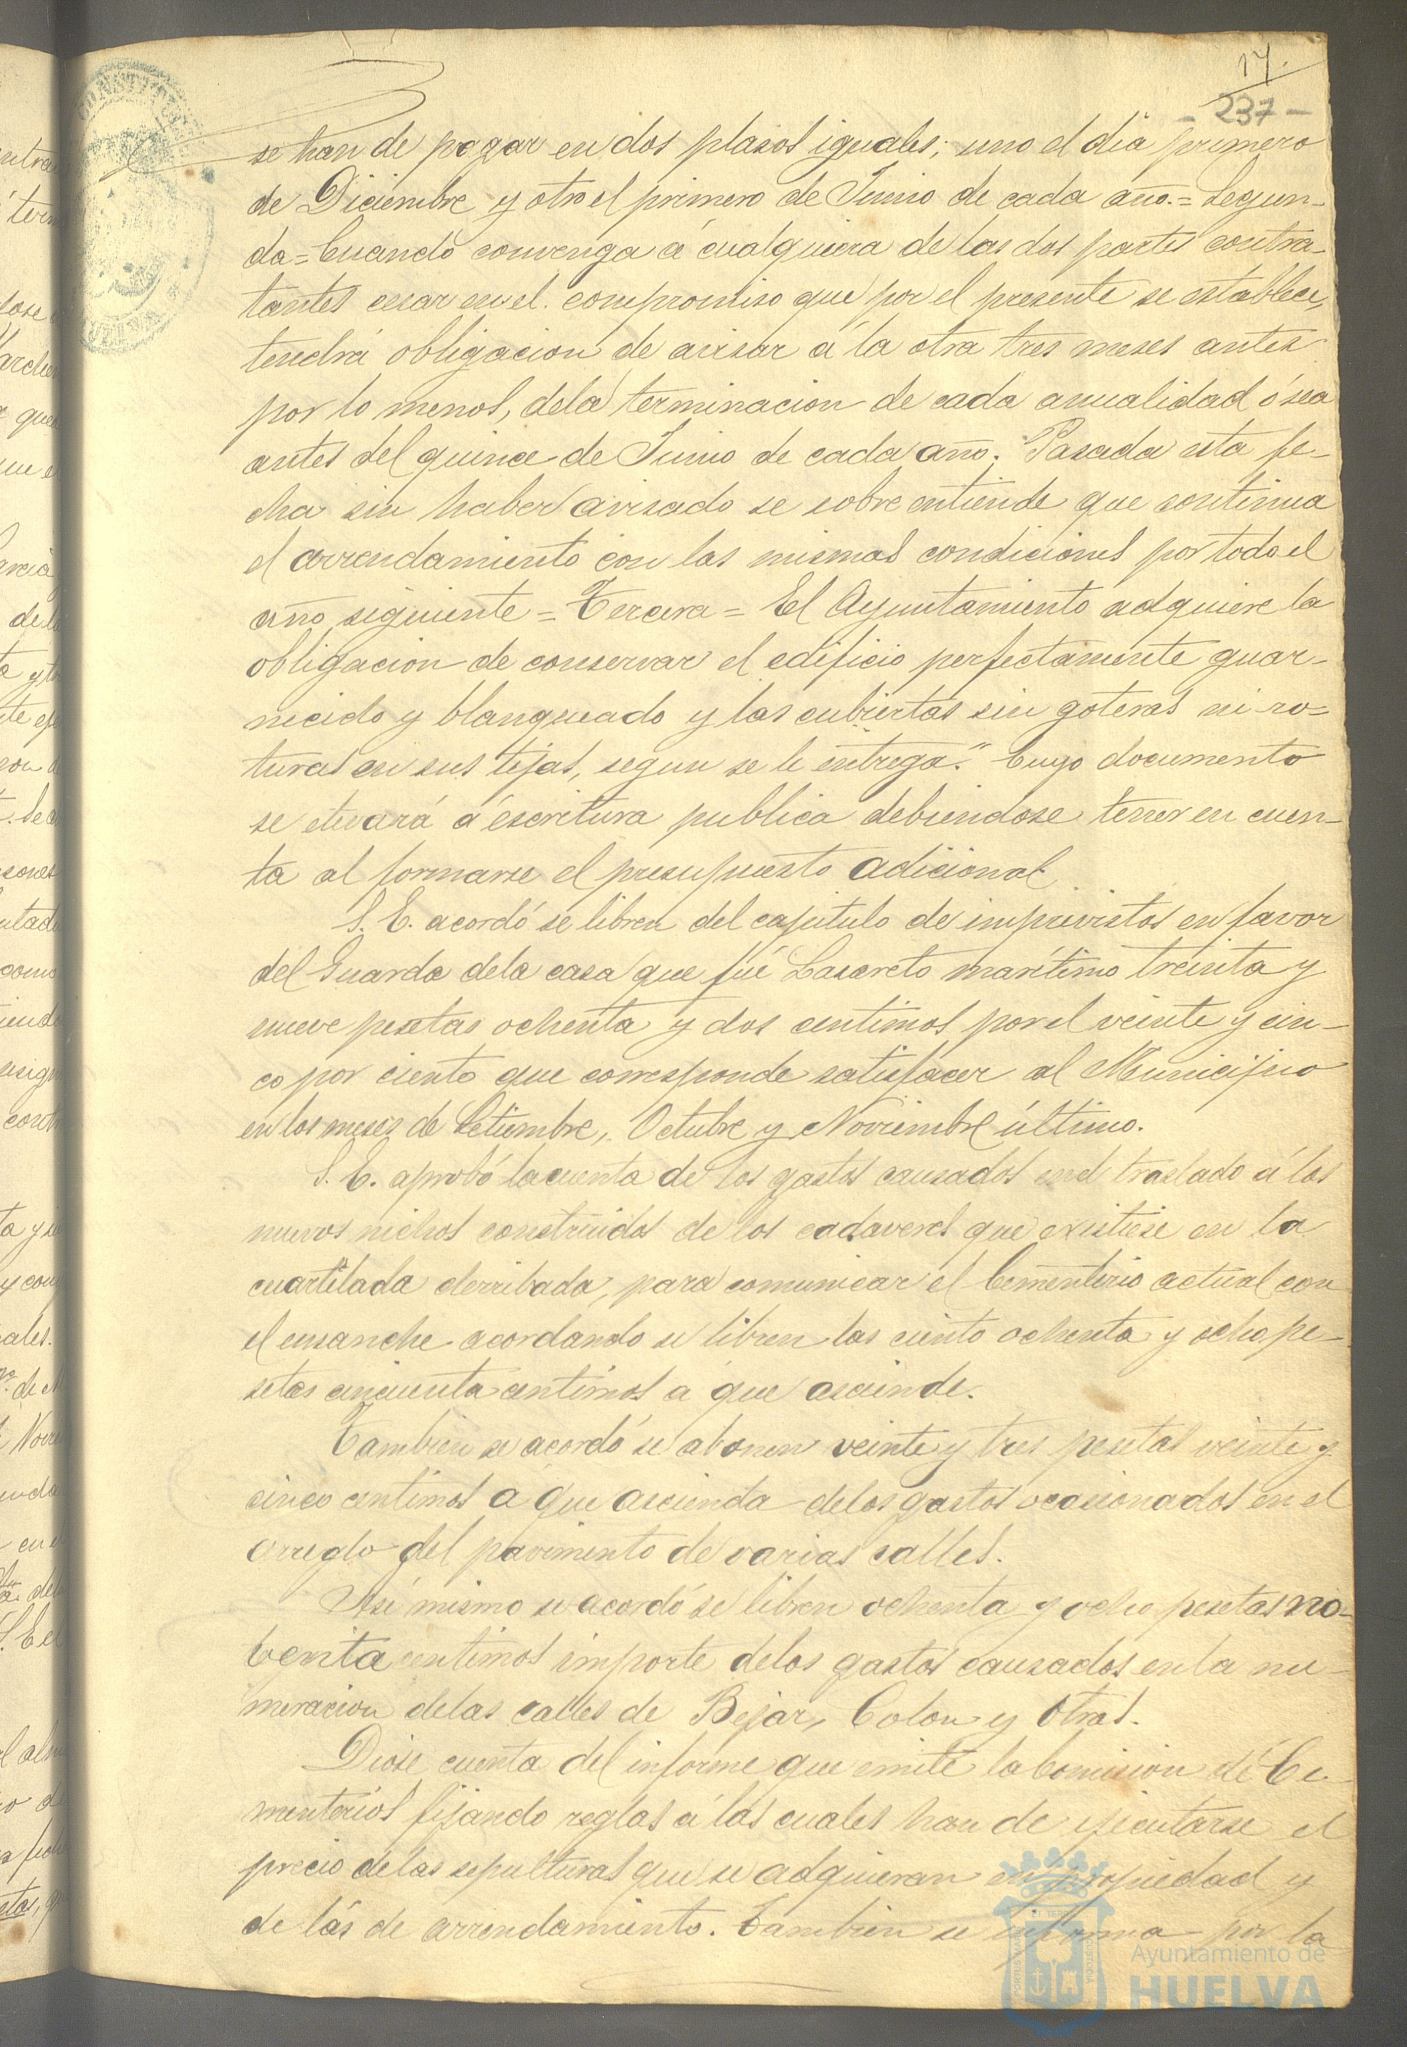 17.
- 237 -
se han de pagar en dos plasos iguales; uno el dia primero
de Diciembre y otro el primero de Junio de cada año.= Segun-
da= Cuando convenga á cualquiera de las dos partes contra-
tantes cesar en el compromiso que por el presente se establece,
tendrá obligacion de avisar á la otra tres meses antes
por lo menos, dela terminacion de cada anualidad ó sea
antes del quince de Junio de cada año. Pasada esta fe-
cha sin haber avisado se sobre entiende que continua
el arrendamiento con las mismas condiciones por todo el
año siguiente = Tercera = El Ayuntamiento adquiere la
obligacion de conservar el edificio perfectamente guar-
necido y blanqueado y las cubiertas sin goteras ni ro-
turas en sus tejas, segun se le entrega." Cuyo documento
se elevará á escritura publica debiendose tener en cuen-
ta al formarse el presupuesto adicional.
S. E. acordó se libren del capitulo de imprevistos en favor
del Guarda dela casa que fué Lasareto marítimo treinta y
nueve pesetas ochenta y dos centimos por el veinte y cin-
co por ciento que corresponde satisfacer al Municipio
en los meses de Setiembre, Octubre y Noviembre último.
S. E. aprobó la cuenta de los gastos causados en el traslado á los
nuevos nichos construidos de los cadaveres que existiese en la
cuartilada derribada, para comunicar el Cementerio actual con
el ensanche acordando se libren las ciento ochenta y ocho pe-
setas cincuenta centimos á que asciende.
Tambien se acordó se abonen veinte y tres pesetas veinte y
cinco centimos a que ascienda delos gastos ocasionados en el
arreglo del pavimento de varias calles.
Asi mismo se acordó se libren ochenta y ocho pesetas no-
benta centimos importe delos gastos causados en la nu-
meracion delas calles de Bejar, Colon y Otras.
Diose cuenta del informe que emite la Comision de Ce-
menterios fijando reglas á las cuales han de ejecutarse el
precio delas sepulturas que se adquieran en propiedad y
de lás de arrendamiento. Tambien se informa por la
Ayuntamiento de
HUELVA